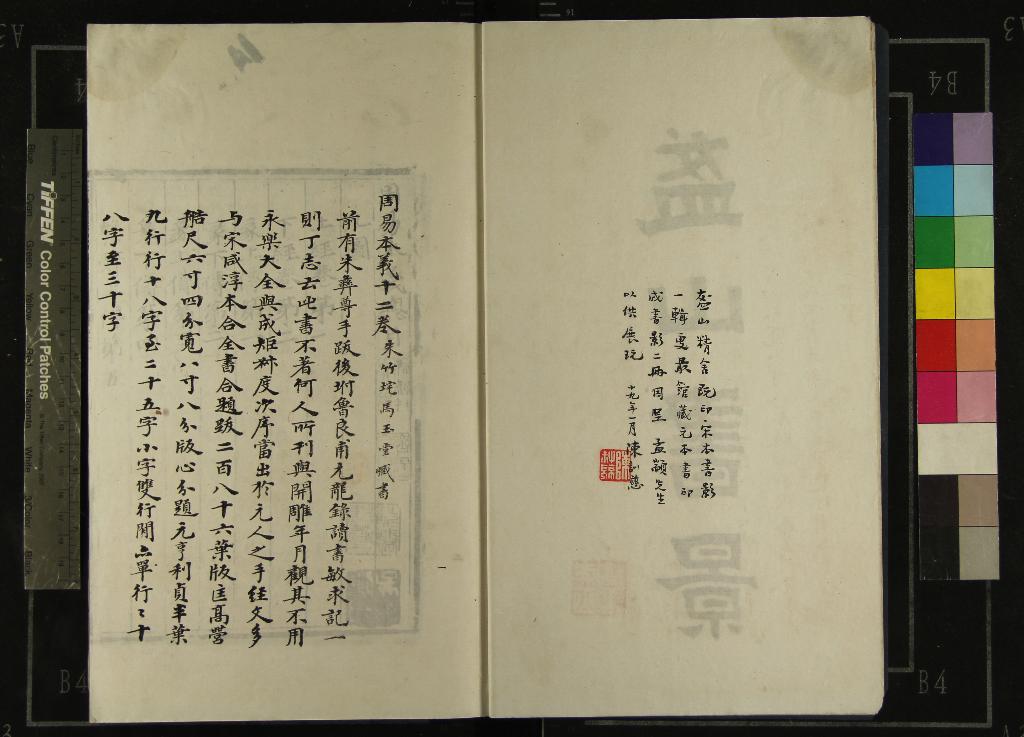 盋山精舍既印宋本書影
一輯更最館藏元本書印
成書影二冊因呈 孟顓先生
以供展玩 十九年一月陳訓慈
周易本義十二卷 朱竹垞馬玉堂臧書
前有朱彝尊手跋後坿魯良甫元龍錄讀書敏求記一
則丁志云此書不著何人所刊與開雕年月觀其不用
永樂大全與成矩栞度次序當出於元人之手經文多
与宋咸淳本合全書合題跋二百八十六葉版匡高營
艁尺六寸四分寬八寸八分版心分題元亨利貞半葉
九行行十八字至二十五字小字雙行閒亦單行三十
八字至三十字
TIFFEN Color Control Patches
Blue
Cyan
Green
Yellow
Red
Magenta
White
3/Color
Black
B4
B4
B4
A3